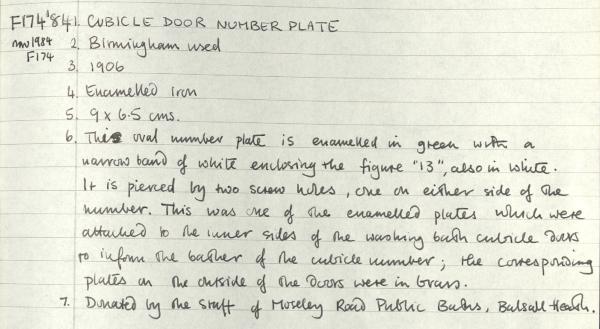 F174'84 1. CUBICLE DOOR NUMBER PLATE
nw1984 2. Birmingham used
F174 3. 1906
4. Enamelled Iron
5. 9 x 6.5 cms.
6. This oval number plate is enamelled in green with a
narrow band of white enclosing the figure "13", also in white.
It is pierced by two screw holes, one on either side of the
number. This was one of the enamelled plates which were
attached to the inner sides of the washing bath cubicle doors
to inform the bather of the cubicle number; the corresponding
plates on the outside of the doors were in brass.
7. Donated by the staff of Moseley Road Public Baths, Balsall Heath.